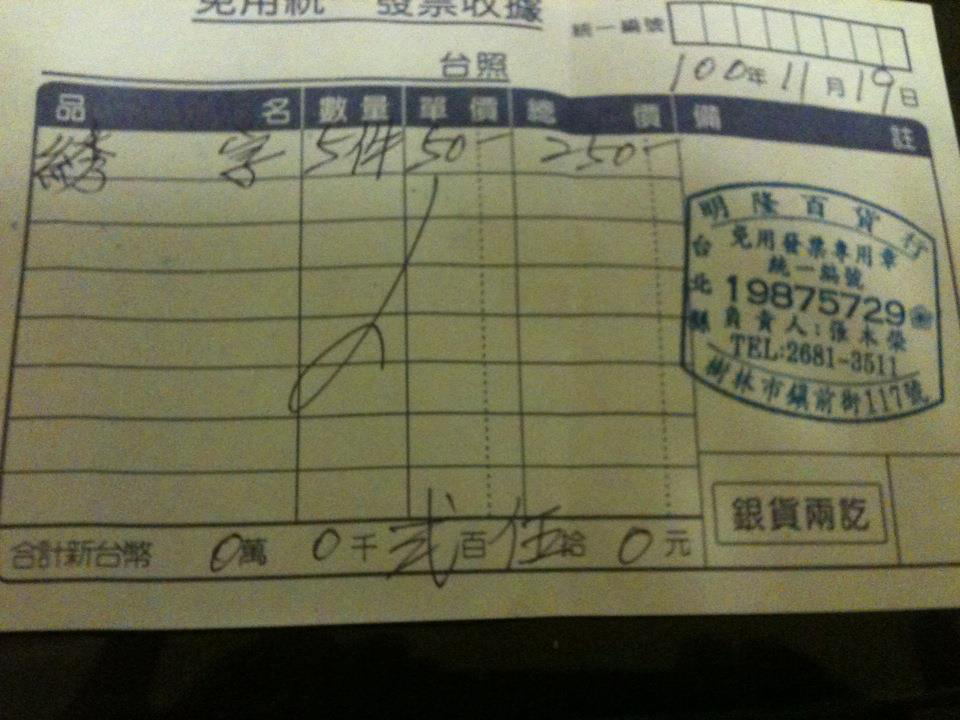 免用統一發票收據
統一編號
100年11月19日
台照
品名 數量 單價 總價 備註
繡字 5件 50- 250-
明隆百貨行
免用發票專用章
統一編號
19875729
負責人:張木榮
TEL:2681-3511
台北縣樹林市鎮前街117號
銀貨兩訖
合計新台幣 0萬 0千 貳百 伍拾 0元